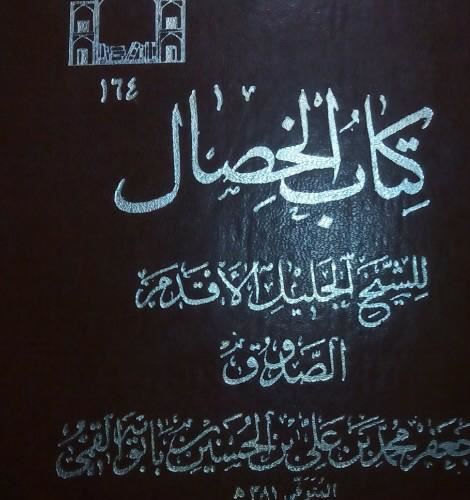 ١٦٤
كتاب الخصال
للشيخ الجليل الأقدم
الصدوق
جعفر محمد بن علي بن الحسين بن بابويه القمي
المتوفى ٣٨١ ه